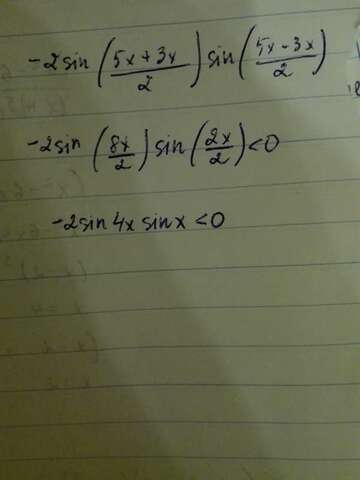 -2sin((5x+3x)/2)sin((5x-3x)/2)
-2sin(8x/2)sin(2x/2)<0
-2sin4xsinx<0